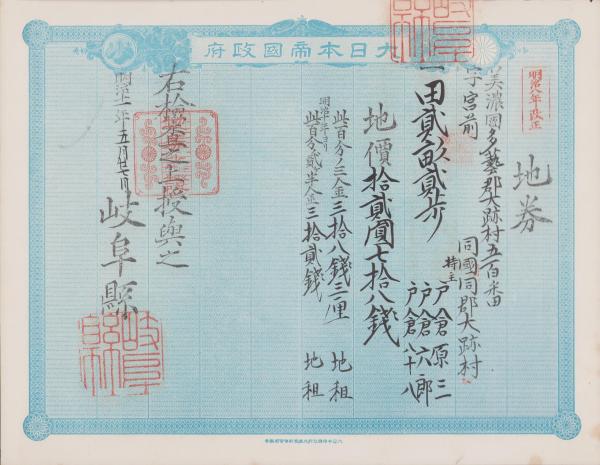 大日本帝國政府
明治八年改正
地券
美濃國多藝郡大跡村五百
字宮前
同國同郡大跡村
持主
戸倉原三
戸倉六郎
戸倉八十八
一田貳畝貳歩
地價拾貳圓七拾八錢
此百分ノ三金三拾八錢三厘 地租
明治十年ヨリ
此百分ノ貳半金三拾貳錢 地租
右検査之上授與之
明治十一年五月廿七日
岐阜縣
岐阜縣